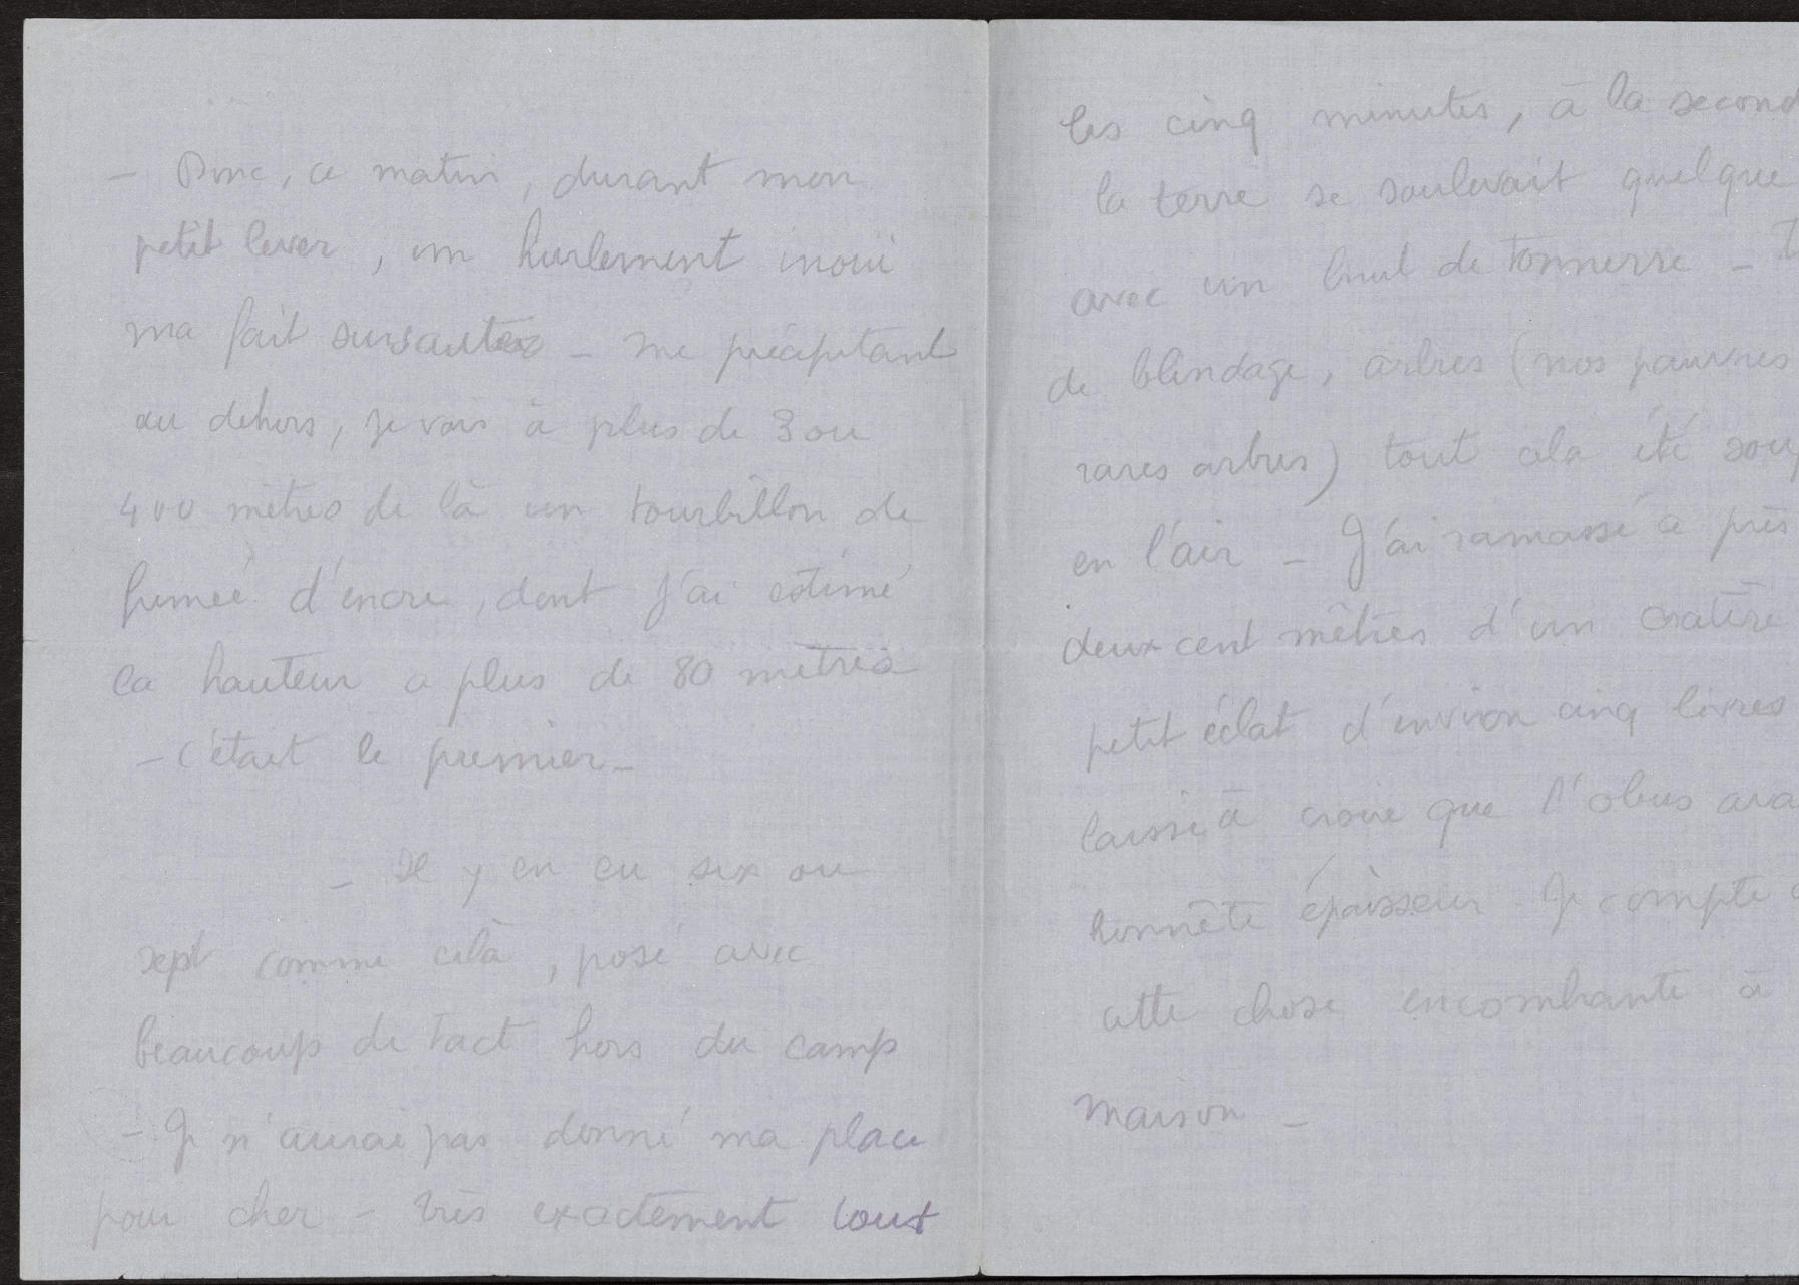 - Donc, ce matin, durant mon
petit lever, un hurlement inouï
ma fait sursauter - me précipitant
au dehors, je vois à plus de 3 ou
400 mètres de là un tourbillon de
fumée d'encre, dont j'ai estimé
la hauteur a plus de 80 mètres
- C'était le premier -
- Il y en eu six ou
sept comme celà, posé avec
beaucoup de tact hors du camp
- Je n'aurai pas donné ma place
pour cher - très exactement tout
les cinq minutes, à la second
la terre se soulevait quelque
avec un bruit de tonnerre -
de blindage, arbres (nos pauvres
rares arbres) tout cela été
en l'air - J'ai ramassé a près
deux cent mètres d'un cratère
petit éclat d'environ cinq livres
laisse à croire que l'obus ava
honnête épaisseur Je compte
cette chose encombrante à
maison -